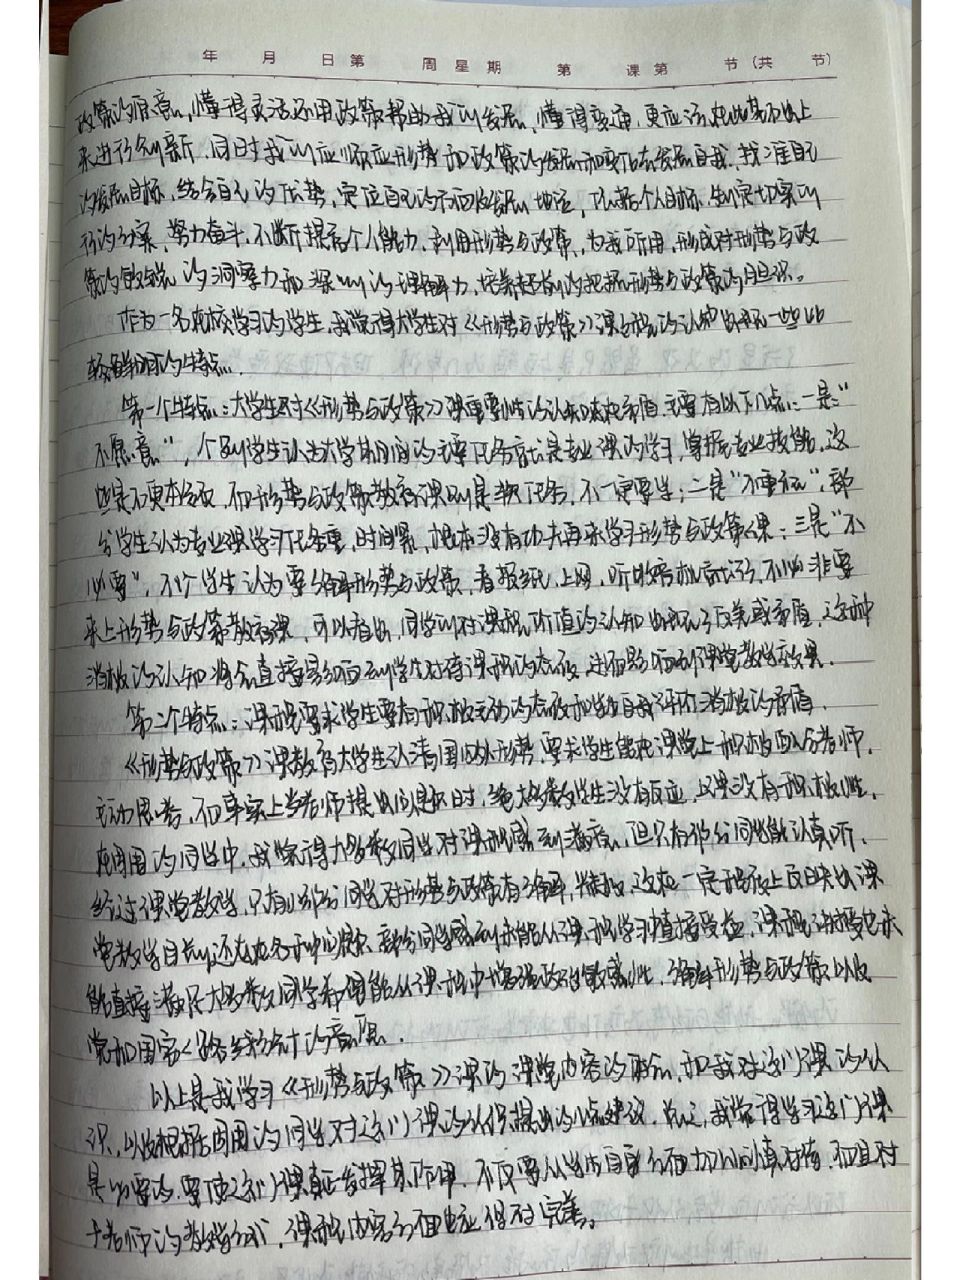 年 月 日 第 周 星 期 第 课 第 节 (共 节)
政策的原意,懂得灵活运用政策帮助我们发展,懂得变通,更应该在此基础上
来进行创新,同时我们应顺应形势和政策的发展和变化去发展自我,找准自己
的发展目标,结合自己的优势,定位自己的不同发展地位,依据个人目标,制定切实可
行的方案,努力奋斗,不断提高个人能力,利用形势与政策,为我所用,形成对形势与政
策的敏锐的洞察力和深刻的理解力,培养超前的把握形势与政策的胆识。
作为一名在校学习的学生,我觉得大学生对《形势与政策》课程的认知出现一些比
较鲜明的特点.
第一个特点:大学生对《形势与政策》课重要性的认知缺乏矛盾主要有以下几点:一是“
不愿意”,个别学生认为大学期间的主要任务就是专业课的学习,掌握专业技能,这
些是不更本领,而形势与政策教育课则是软任务,不一定要学;二是“不重视”,部
分学生认为专业课学习任务重,时间紧,根本没有功夫再来学习形势与政策课;三是“不
必要”,不少学生认为要了解形势与政策,看报纸,上网,听收音机就行,不必非要
来上形势与政策教育课,可以看出,同学们对课程价值的认知出现了反差或矛盾,这种
消极的认知将会直接影响到学生对待课程的态度,进而影响到课堂教学效果.
第二个特点:课程要求学生要有积极主动的态度和学生自我评价消极的矛盾.
《形势与政策》课教育大学生认清国内外形势,要求学生能在课堂上积极配合老师,
主动思考,而事实上当老师提出问题时,绝大多数学生没有反应,上课没有积极性,
在周围的同学中,我觉得大多数同学对课程感到满意,但只有部分同学能认真听,
经过课堂教学,只有小部分同学对形势与政策有了解,掌握,这在一定程度上反映出课
堂教学目前还存在各种问题,部分同学感到未能从课程学习中直接受益,课程讲授也未
能直接满足大多数同学希望能从课程中增强政治敏感性,了解形势与政策以及
党和国家路线方针的意愿.
以上是我学习《形势与政策》课的课堂内容的概念,和我对这门课的认
识,以及根据周围的同学对这门课的认识提出的一点建议,总之,我觉得学习这门课
是必要的,要使这门课真正发挥其作用,不仅要从学生自身方面加以认真对待,而且对
于老师的教学方式,课程内容方面也应得对完善。